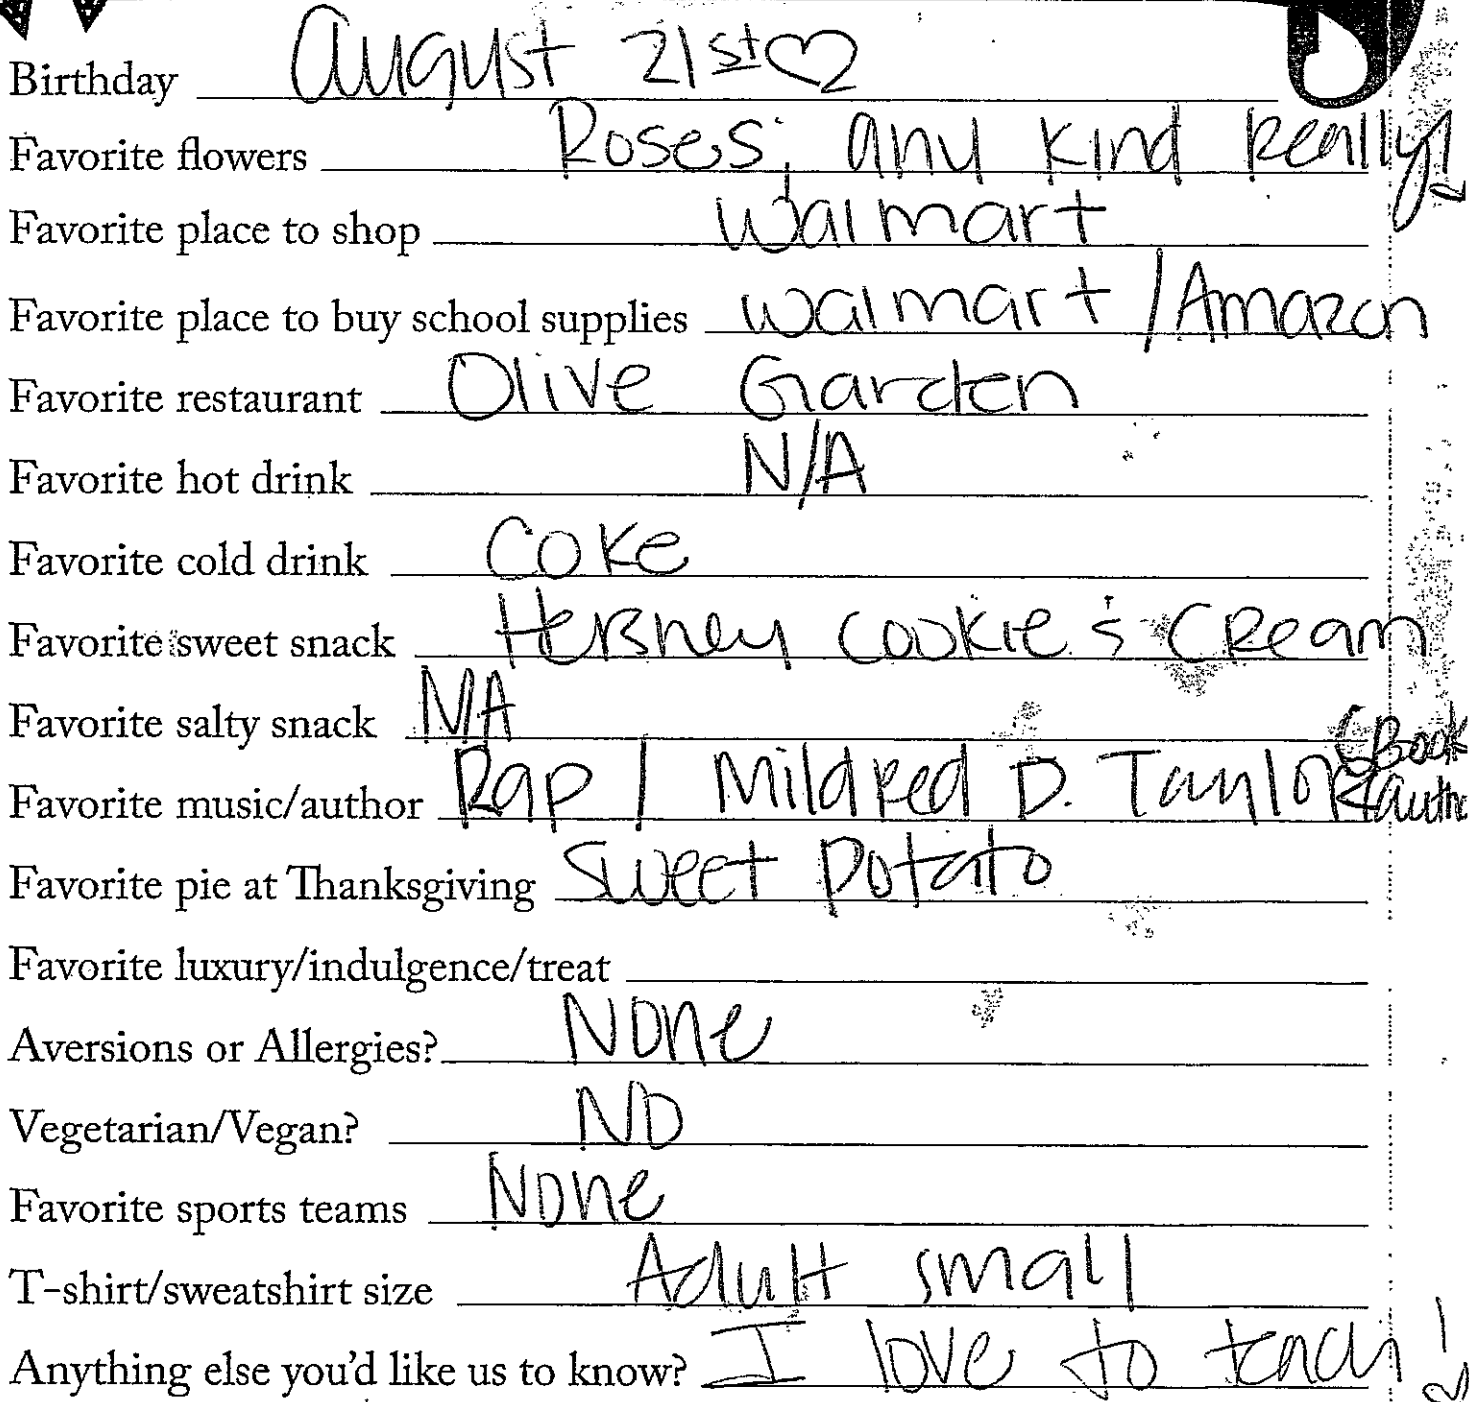 Birthday August 21st♡
Favorite flowers Roses, any kind Really!
Favorite place to shop Walmart
Favorite place to buy school supplies Walmart / Amazon
Favorite restaurant Olive Garden
Favorite hot drink N/A
Favorite cold drink Coke
Favorite sweet snack Hershey Cookie's Cream
Favorite salty snack N/A
Favorite music/author Rap / Mildred D. Taylor (Book autho
Favorite pie at Thanksgiving Sweet Potato
Favorite luxury/indulgence/treat
Aversions or Allergies? None
Vegetarian/Vegan? No
Favorite sports teams None
T-shirt/sweatshirt size Adult small
Anything else you'd like us to know? I love to teach!